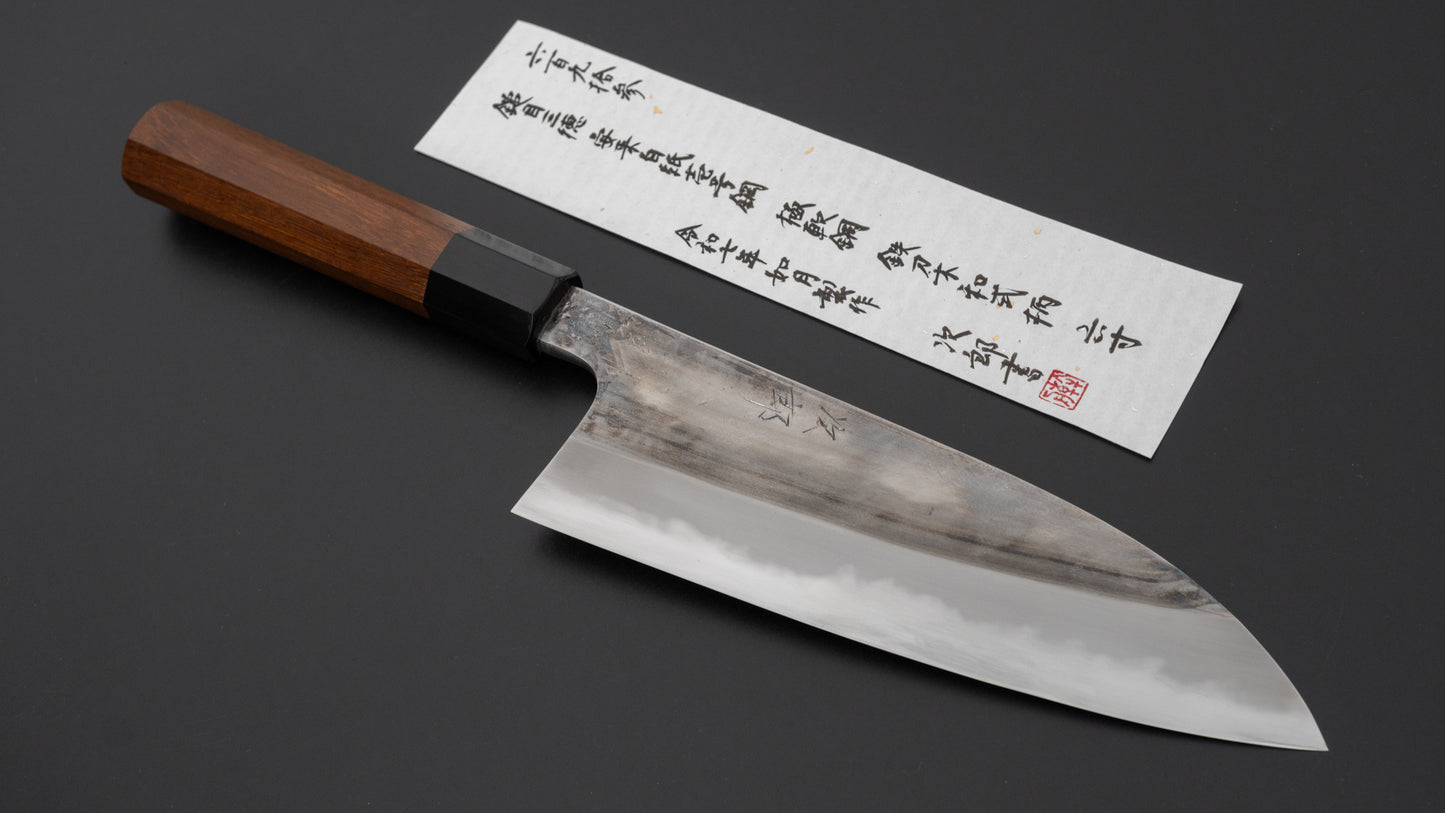 六百九拾参
鎚目三徳 安来白紙壱号鋼 極軟鋼 鉄刀木和式柄 六寸
令和七年如月製作
次郎書